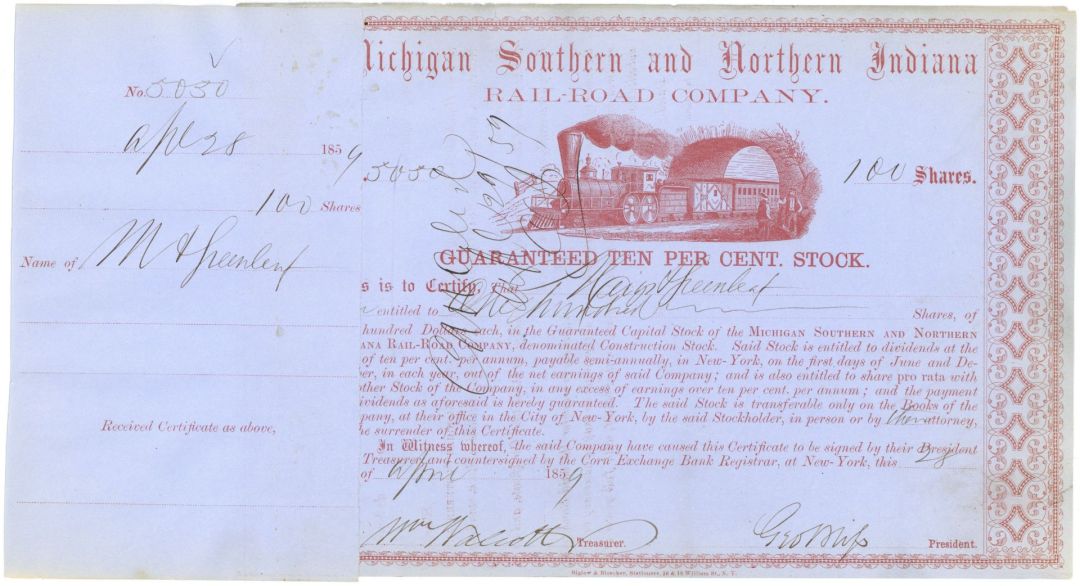 No. 5050
Apl 28 1859
100 Shares
Name of M & Greenleaf
Received Certificate as above,
Michigan Southern and Northern Indiana
RAIL-ROAD COMPANY.
5050
100 Shares.
GUARANTEED TEN PER CENT. STOCK.
s is to Certify, That & Greenleaf
entitled to One hundred Shares, of
hundred Dollars each, in the Guaranteed Capital Stock of the MICHIGAN SOUTHERN AND NORTHERN
ANA RAIL-ROAD COMPANY, denominated Construction Stock. Said Stock is entitled to dividends at the
of ten per cent. per annum, payable semi-annually, in New-York, on the first days of June and De-
er, in each year, out of the net earnings of said Company; and is also entitled to share pro rata with
other Stock of the Company, in any excess of earnings over ten per cent. per annum; and the payment
ividends as aforesaid is hereby guaranteed. The said Stock is transferable only on the Books of the
pany, at their office in the City of New-York, by the said Stockholder, in person or by their attorney,
he surrender of this Certificate.
In Witness whereof, the said Company have caused this Certificate to be signed by their President
Treasurer, and countersigned by the Corn Exchange Bank Registrar, at New-York, this 28
of April 1859
Wm Walcott Treasurer. Geo Bliss President.
Bigelow & Bleecker, Stationers, 16 & 18 William St., N. Y.
Cancelled
59